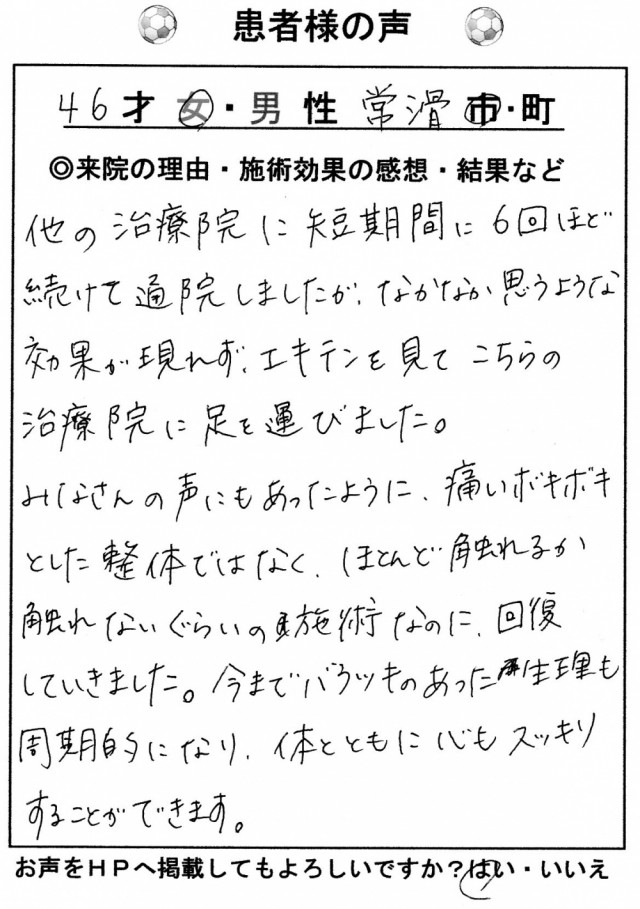 患者様の声
46才 女・男 性 常滑 市・町
◎来院の理由・施術効果の感想・結果など
他の治療院に短期間に6回ほど
続けて通院しましたが、なかなか思うような
効果が現れず、エキテンを見てこちらの
治療院に足を運びました。
みなさんの声にもあったように、痛いボキボキ
とした整体ではなく、ほとんど触れるか
触れないぐらいの施術なのに、回復
していきました。今までバラツキのあった生理も
周期的になり、体とともに心もスッキリ
することができます。
お声をHPへ掲載してもよろしいですか？はい・いいえ